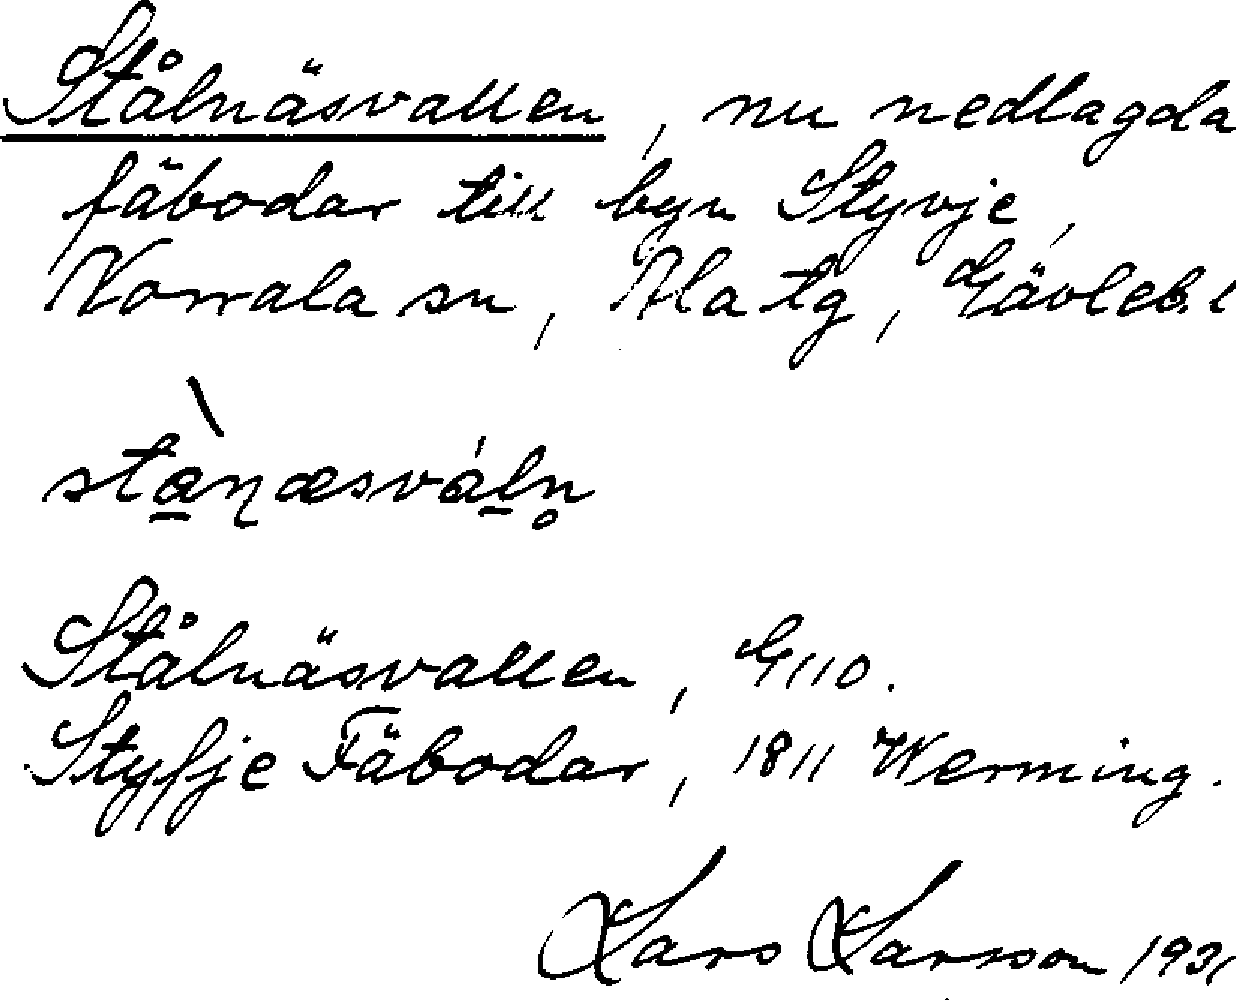 Stålnäsvallen, nu nedlagda
fäbodar till byn Styvje,
Norrala sn, Ala tg, Gävleb. l
Stålnäsvallen, G 110.
Styfje Fäbodar, 1811 Werming.
Lars Larsson 193